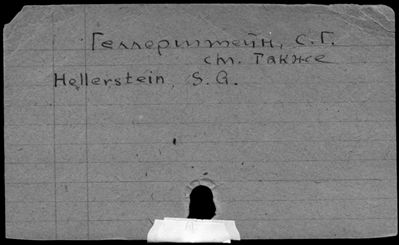 Геллерштейн, С.Г.
см. также
Hellerstein, S.G.